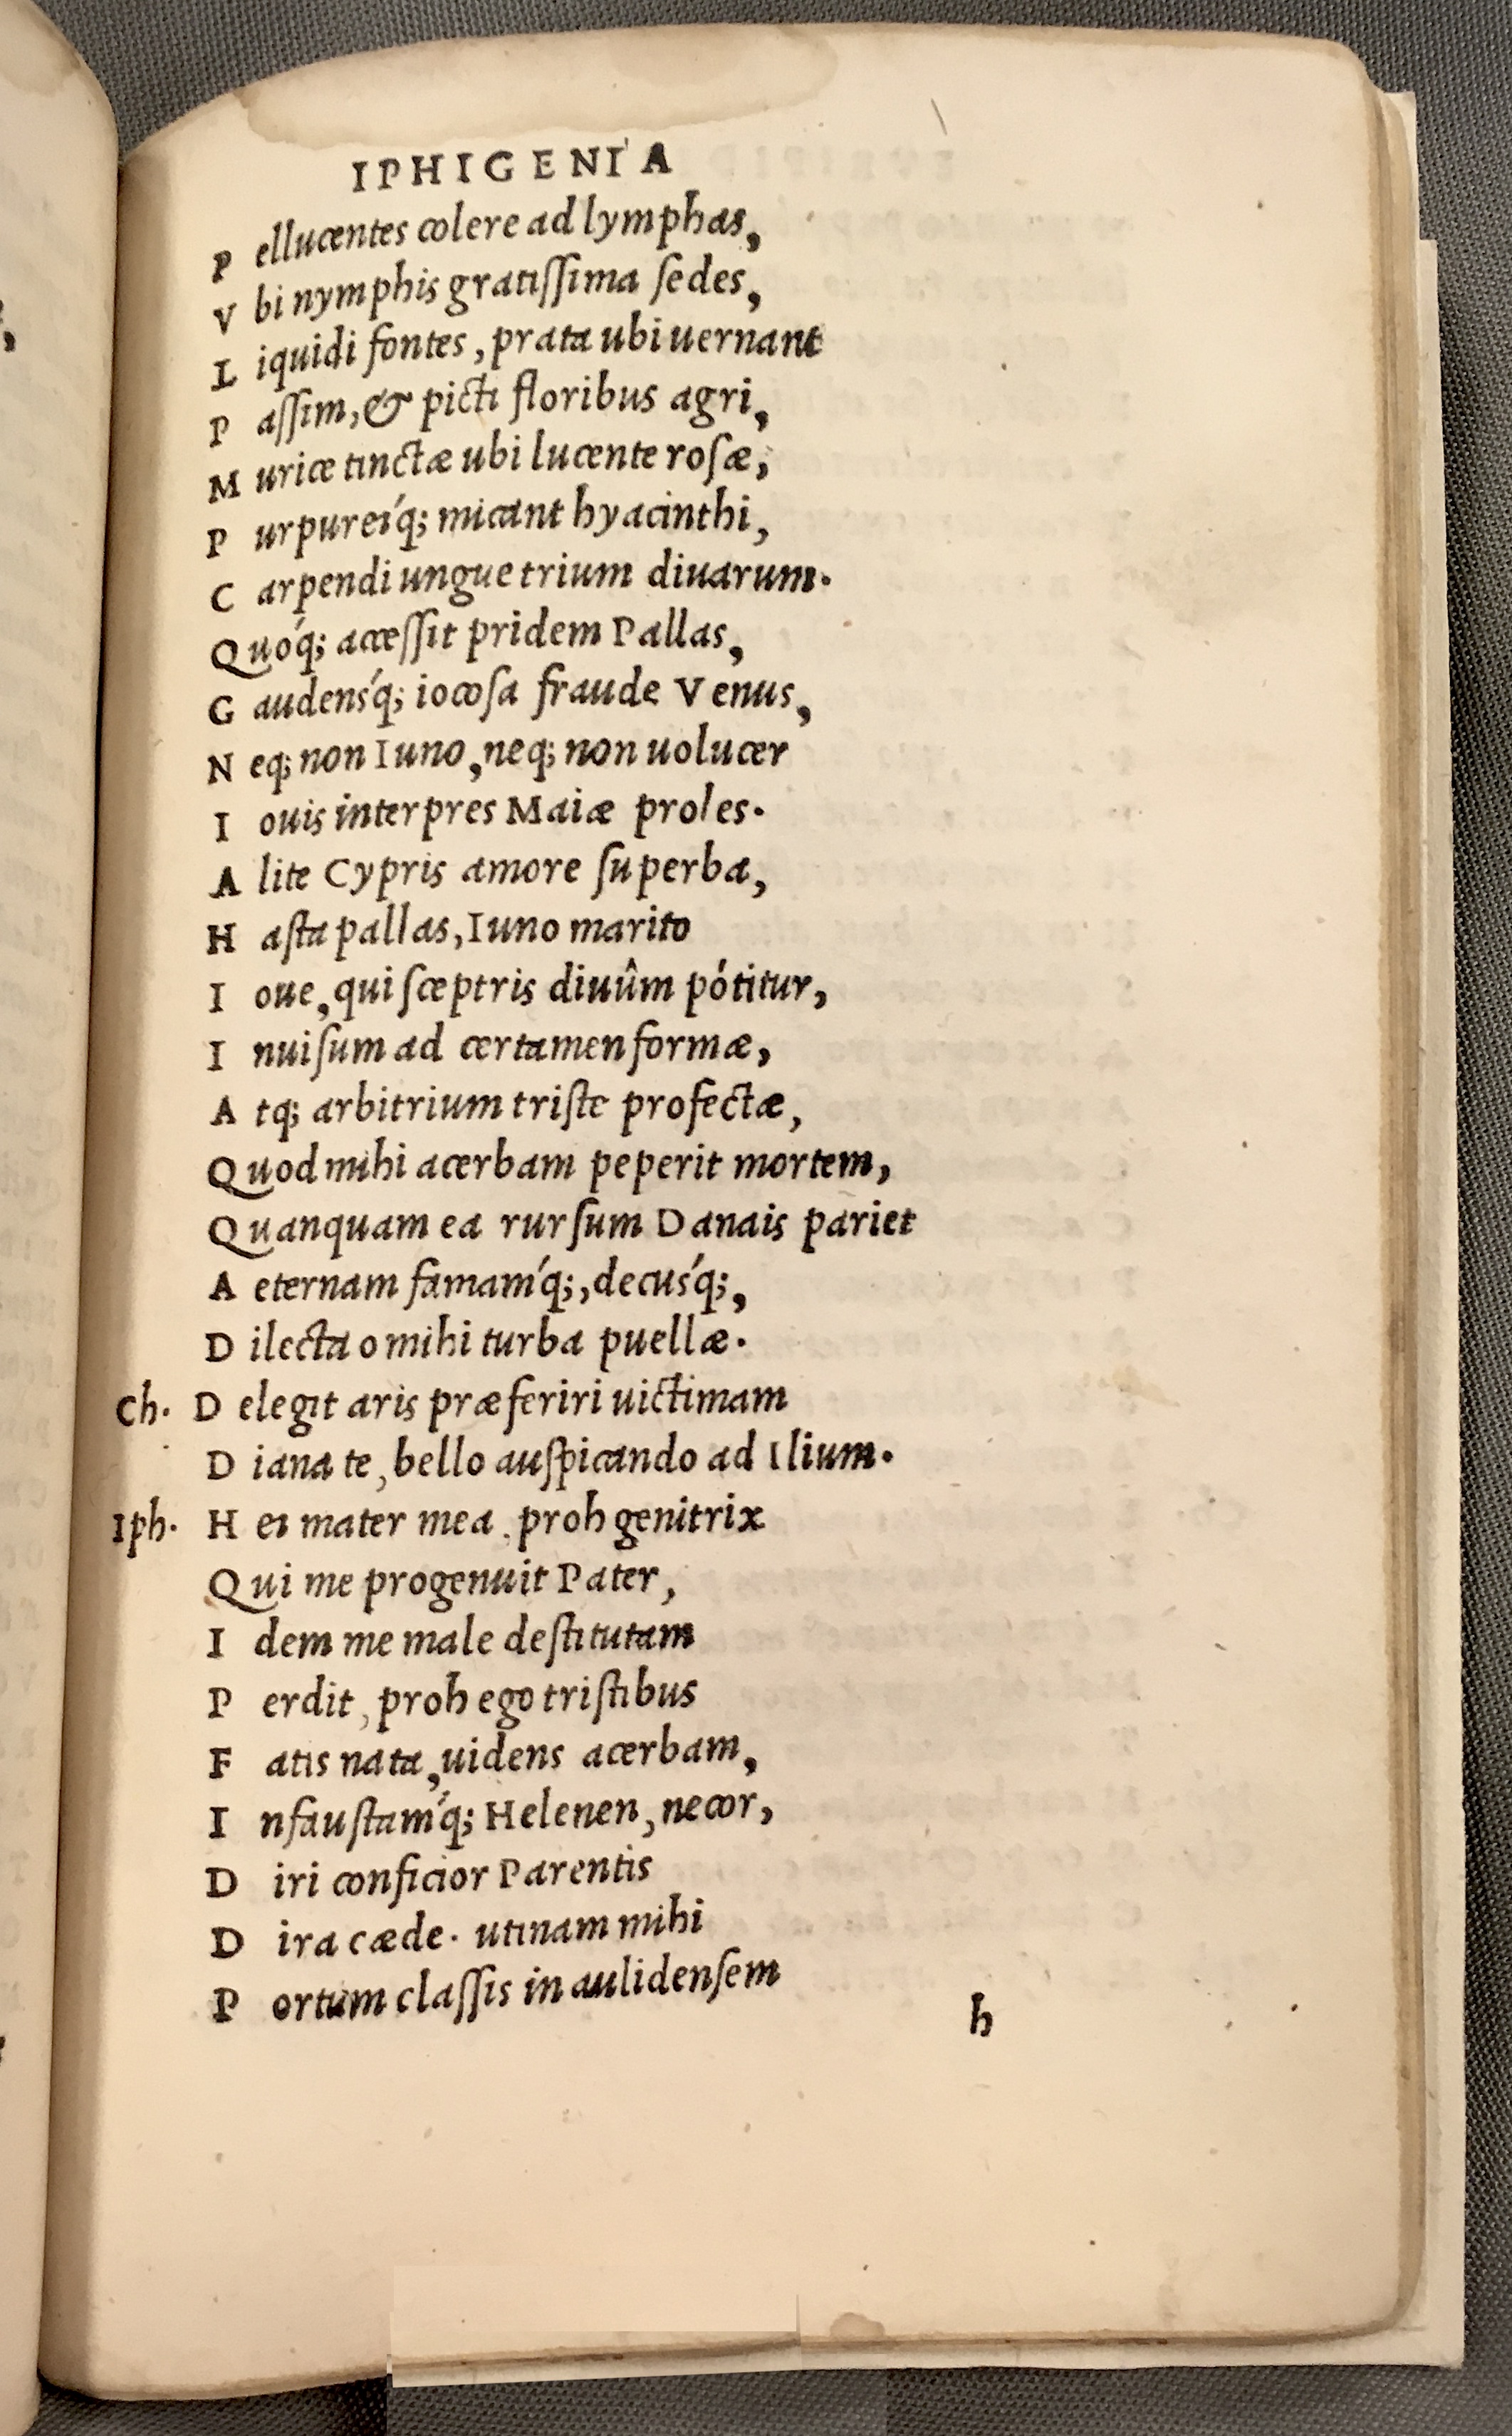 IPHIGENIA
Pellucentes colere ad lymphas,
Vbi nymphis gratiſſima ſedes,
Liquidi fontes, prata ubi uernant
Paſſim, & picti floribus agri,
Murice tinctæ ubi lucente roſæ,
Purpureíq; micant hyacinthi,
Carpendi ungue trium diuarum.
Quóq; acceſſit pridem Pallas,
Gaudensq́; iocoſa fraude Venus,
Neq; non Iuno, neq; non uolucer
Iouis interpres Maiæ proles.
Alite Cypris amore ſuperba,
Haſta pallas, Iuno marito
Ioue, qui ſceptris diuûm pótitur,
Inuiſum ad certamen formæ,
Atq; arbitrium triſte profectæ,
Quod mihi acerbam peperit mortem,
Quanquam ea rurſum Danais pariet
Aeternam famamq́;, decusq́;,
Dilecta o mihi turba puellæ.
Ch. Delegit aris præferiri uictimam
Diana te, bello auſpicando ad Ilium.
Iph. Hei mater mea. proh genitrix
Qui me progenuit Pater,
Idem me male deſtitutam
Perdit, proh ego triſtibus
Fatis nata, uidens acerbam,
Infauſtamq́; Helenen, necor,
Diri conficior Parentis
Dira cæde. utinam mihi
Portum claſſis in aulidenſem
h